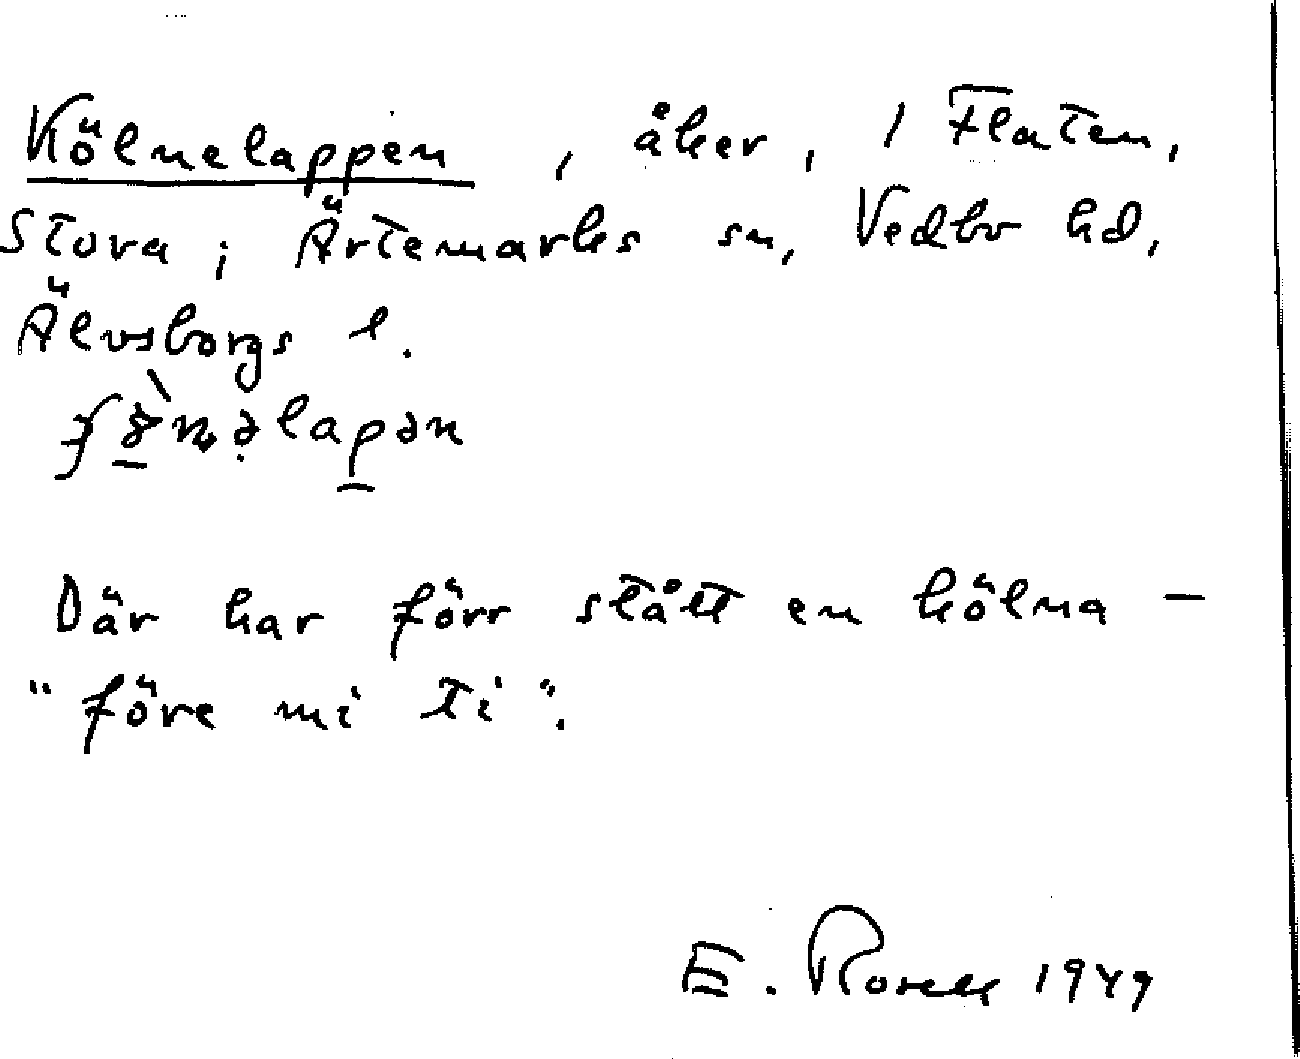 Kölnelappen, åker, 1 Flaten,
Stora; Ärtemarks sn, Vedbo hd,
Älvsborgs l.
Där har förr stått en kölna –
"före mi ti".
E. Rosell 1949